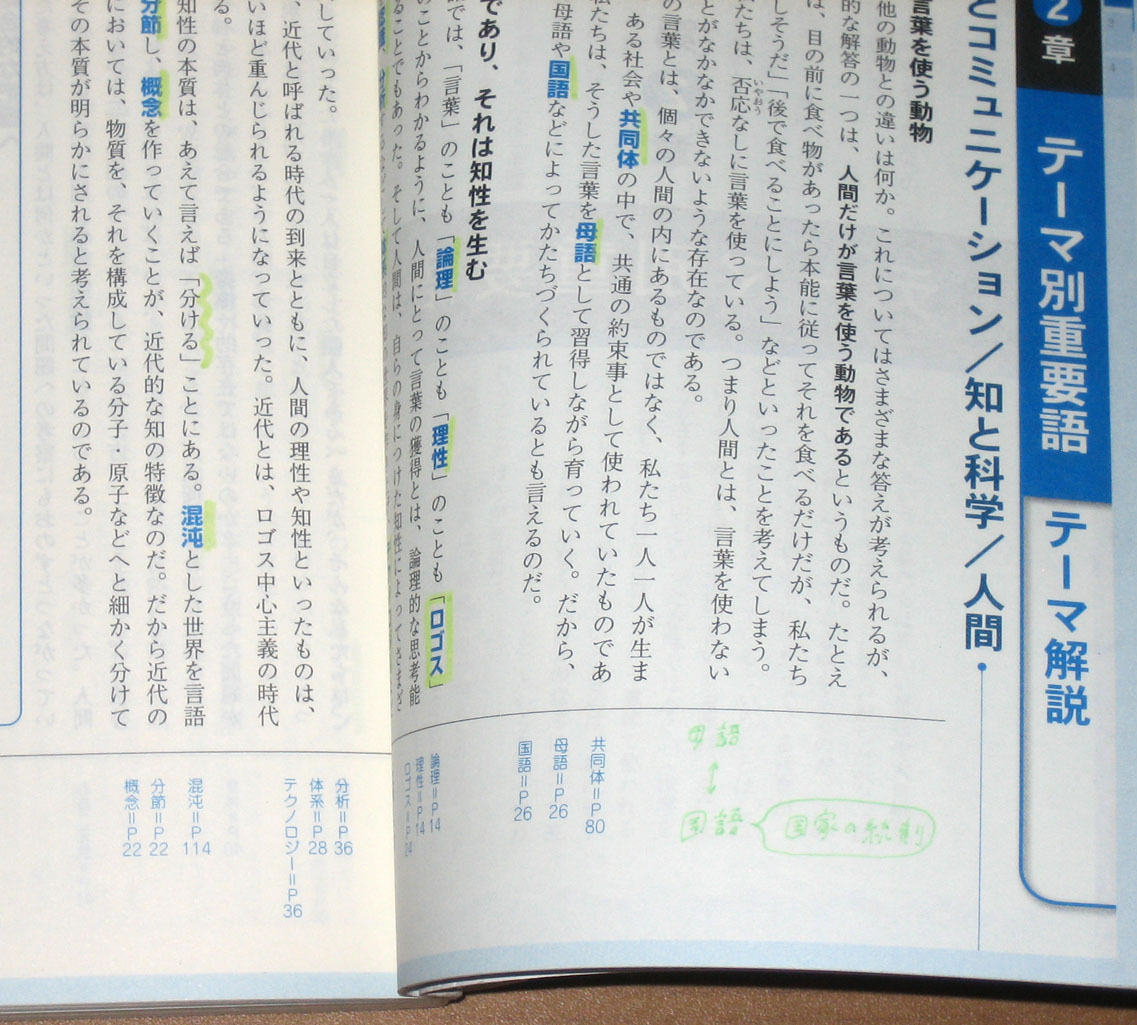 2章
テーマ別重要語
テーマ解説
とコミュニケーション／知と科学／人間
言葉を使う動物
他の動物との違いは何か。これについてはさまざまな答えが考えられるが、
的な解答の一つは、人間だけが言葉を使う動物であるというものだ。たとえ
は、目の前に食べ物があったら本能に従ってそれを食べるだけだが、私たち
しそうだ」「後で食べることにしよう」などといったことを考えてしまう。
たちは、否応なしに言葉を使っている。つまり人間とは、言葉を使わない
いやおう
とがなかなかできないような存在なのである。
の言葉とは、個々の人間の内にあるものではなく、私たち一人一人が生ま
ある社会や共同体の中で、共通の約束事として使われていたものであ
私たちは、そうした言葉を母語として習得しながら育っていく。だから、
母語や国語などによってかたちづくられているとも言えるのだ。
であり、それは知性を生む
では、「言葉」のことも「論理」のことも「理性」のことも「ロゴス」
のことからわかるように、人間にとって言葉の獲得とは、論理的な思考能
ることでもあった。そして人間は、自らの身につけた知性によってさまざ
母語
↕
国語
国家の統制
共同体＝P80
母語＝P26
国語＝P26
論理＝P14
理性＝P14
ロゴス＝P14
していった。
、近代と呼ばれる時代の到来とともに、人間の理性や知性といったものは、
いほど重んじられるようになっていった。近代とは、ロゴス中心主義の時代
る。
知性の本質は、あえて言えば「分ける」ことにある。混沌とした世界を言語
分節し、概念を作っていくことが、近代的な知の特徴なのだ。だから近代の
においては、物質を、それを構成している分子・原子などへと細かく分けて
その本質が明らかにされると考えられているのである。
分析＝P36
体系＝P28
テクノロジー＝P36
混沌＝P114
分節＝P22
概念＝P22